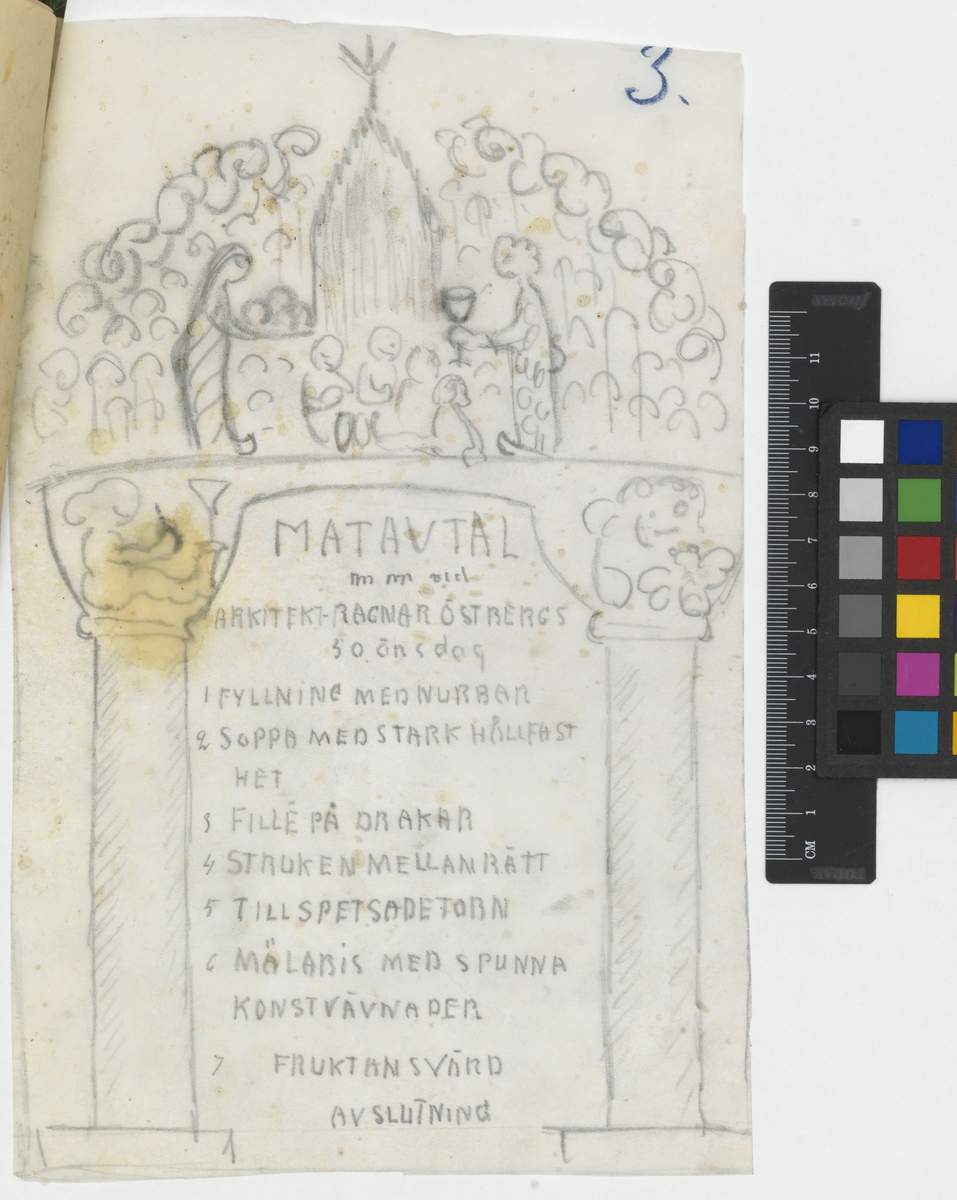 3.
MATAVTAL
m m vid
ARKITEKT-RAGNAR ÖSTBERGS
50 årsdag
1 FYLLNING MED NUBBAR
2 SOPPA MED STARK HÅLLFAST
HET
3 FILLÉ PÅ DRAKAR
4 STRUKEN MELLANRÄTT
5 TILLSPETSADE TORN
6 MÄLARIS MED SPUNNA
KONSTVÄVNADER
7 FRUKTANSVÄRD
AVSLUTNING
11
10
9
8
7
6
5
4
3
2
1
CM